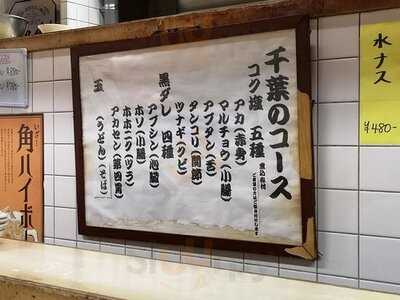 千葉のコース
コク塩 五種 煮込み付
アカ(赤身)
マルチョウ(小腸)
アブタン(舌)
タンコリ(関節)
ツナギ(のど)
黒ダレ 四種
アブシン(心臓)
ホソ(小腸)
ホホニク(ツラ)
アカセン(第四胃)
玉
(うどん)(そば)
水ナス
¥480-
角ハイボ